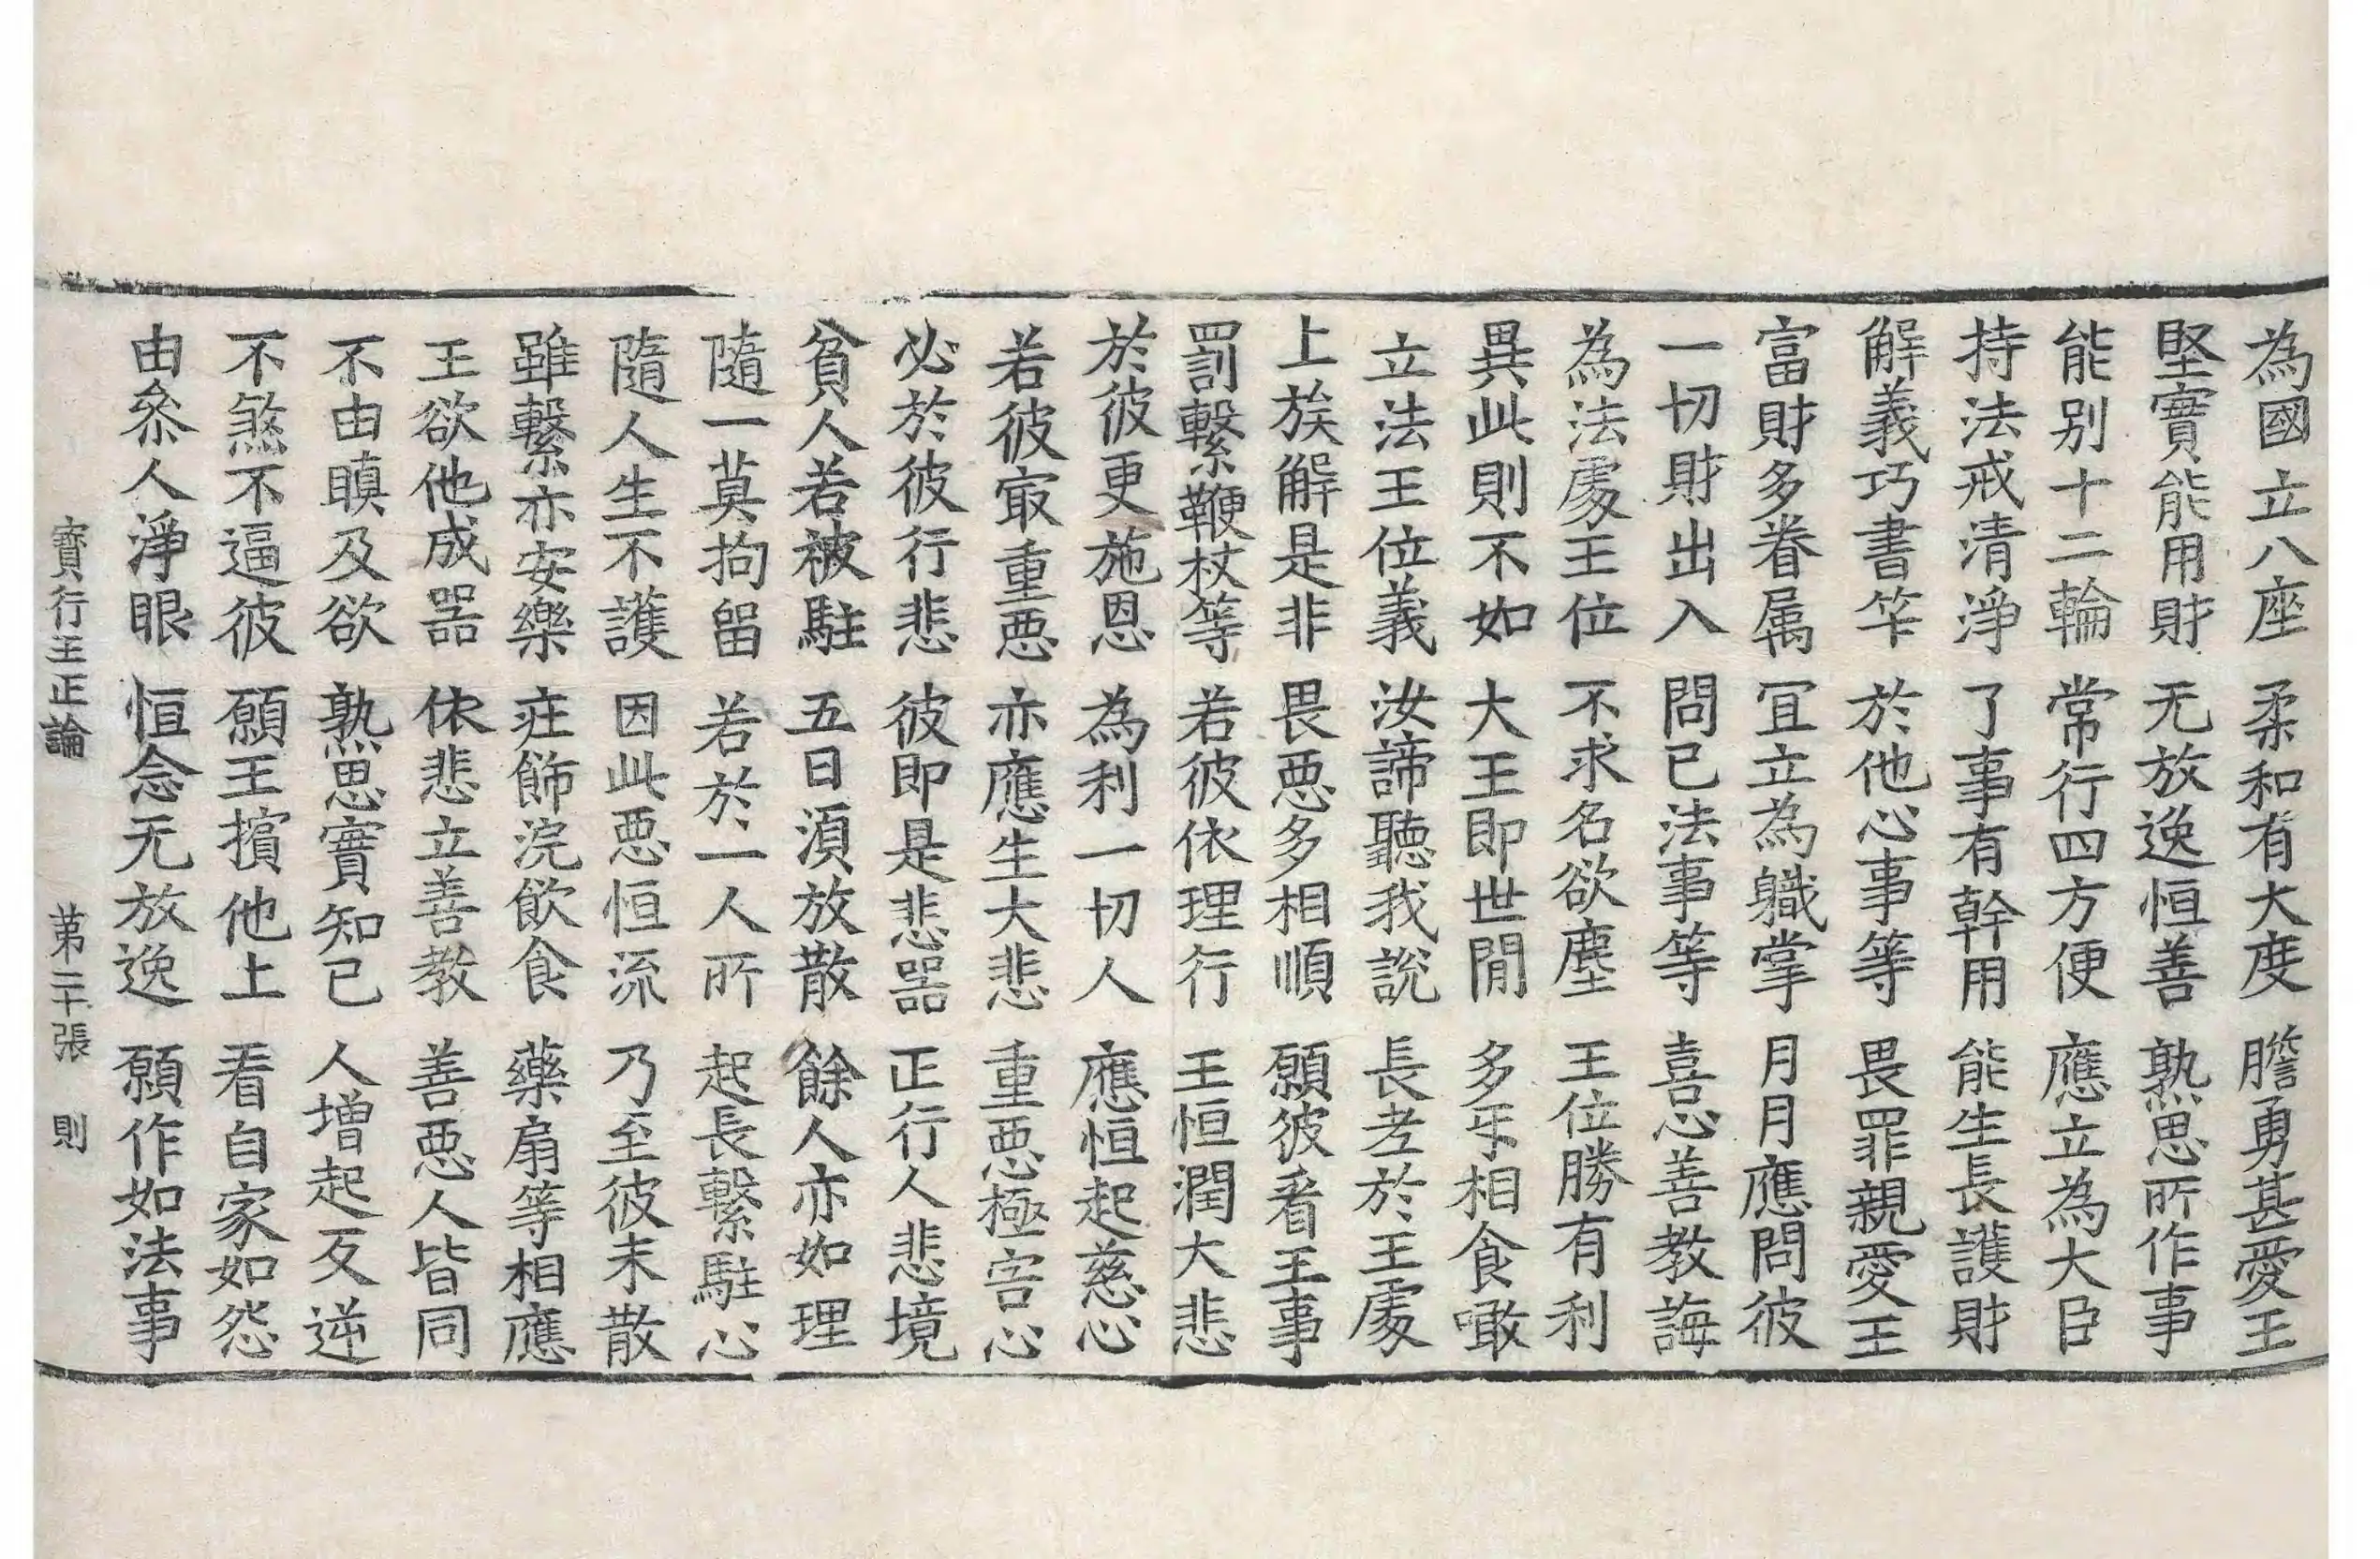 為國立八座　柔和有大度　膽勇甚愛王
堅實能用財　无放逸恒善　熟思所作事
能別十二輪　常行四方便　應立為大臣
持法戒清淨　了事有幹用　能生長護財
解義巧書笇　於他心事等　畏罪親愛王
富財多眷属　冝立為軄掌　月月應問彼
一切財出入　問已法事等　喜心善教誨
為法處王位　不求名欲塵　王位勝有利
異此則不如　大王即世閒　多㸦相食噉
立法王位義　汝諦聽我說　長老於王處
上族解是非　畏惡多相順　願彼看王事
罰繫鞭杖等　若彼依理行　王恒潤大悲
於彼更施恩　為利一切人　應恒起慈心
若彼㝡重惡　亦應生大悲　重惡極害心
必於彼行悲　彼即是悲器　正行人悲境
貧人若被駐　五日湏放散　餘人亦如理
隨一莫拘留　若於一人所　起長繫駐心
隨人生不護　因此惡恒流　乃至彼未散
雖繫亦安樂　疘飾浣飲食　藥扇等相應
王欲他成器　依悲立善教　善惡人皆同
不由瞋及欲　熟思實知已　人增起反逆
不煞不逼彼　願王擯他土　看自家如怨
由叅人淨眼　恒念无放逸　願作如法事
寶行王正論　第二十張　則